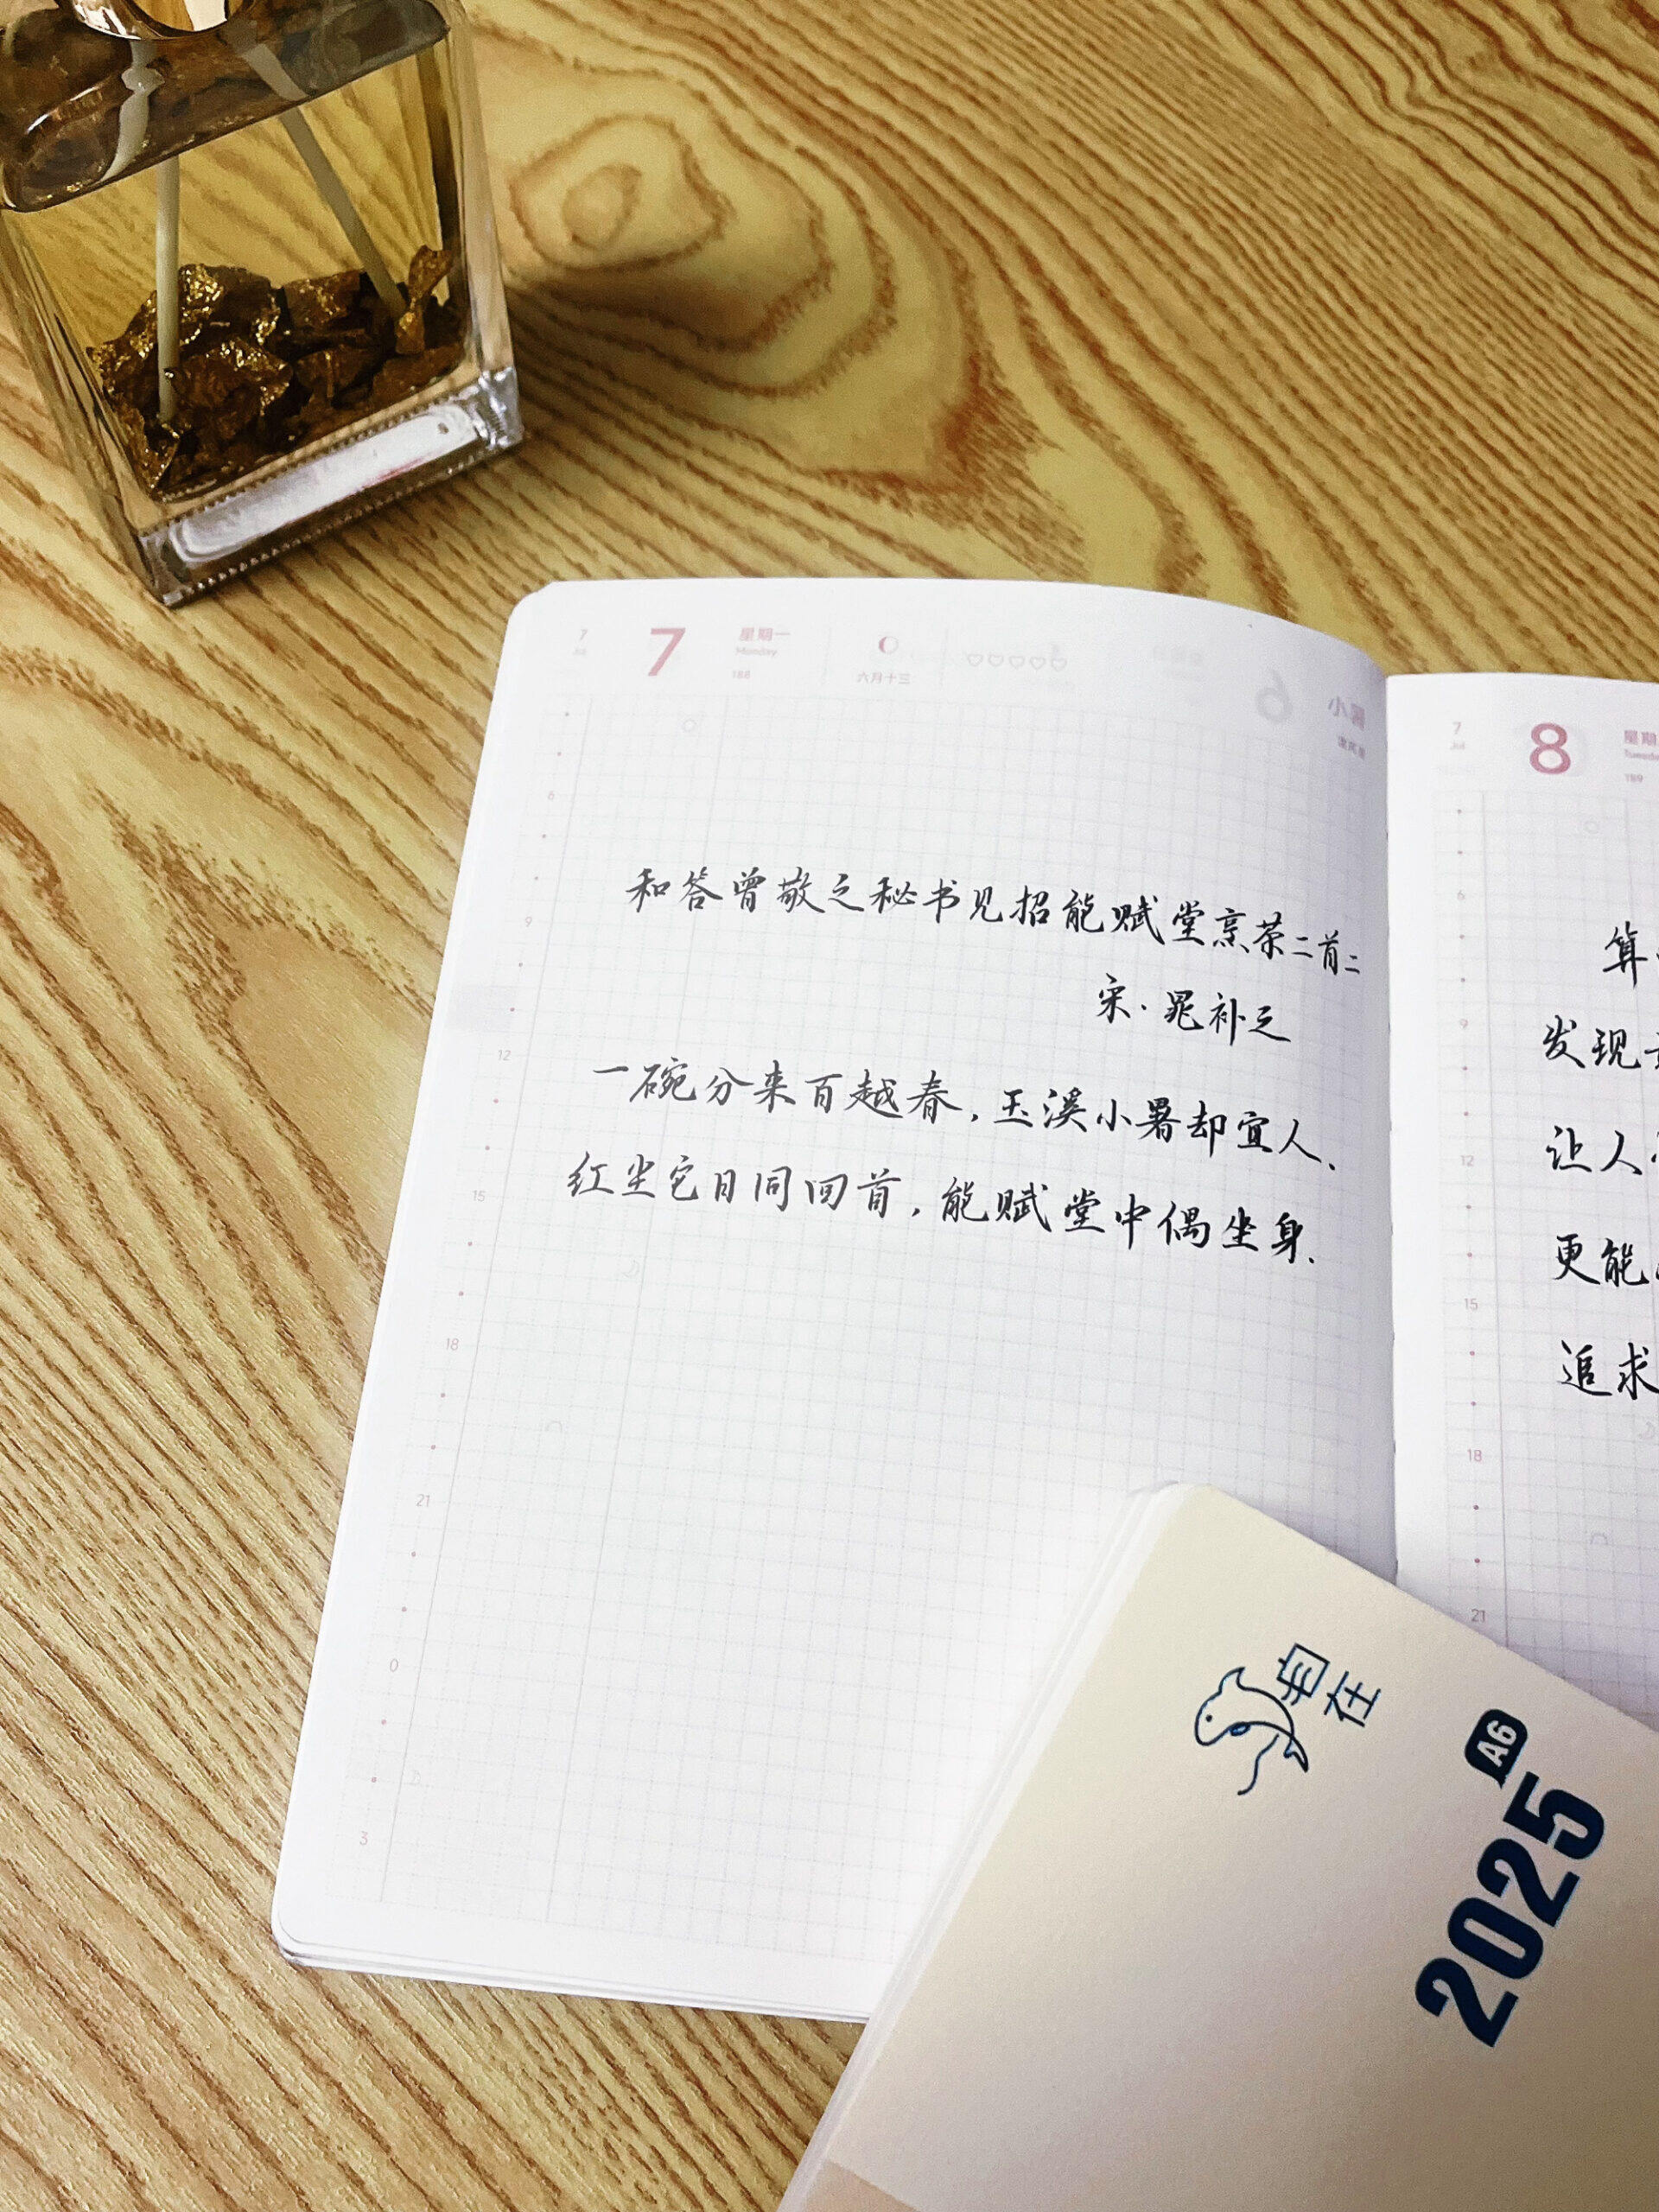 7
7
星期一
Monday
188
六月十三
小暑
和答曾敬之秘书见招能赋堂烹茶二首二
宋·晁补之
一碗分来百越春，玉溪小暑却宜人、
红尘它日同回首，能赋堂中偶坐身.
6
9
12
15
18
21
0
3
7
Jul
8
星期
189
算
发现
让人
更能
追求
6
9
12
15
18
21
自在
A6
2025